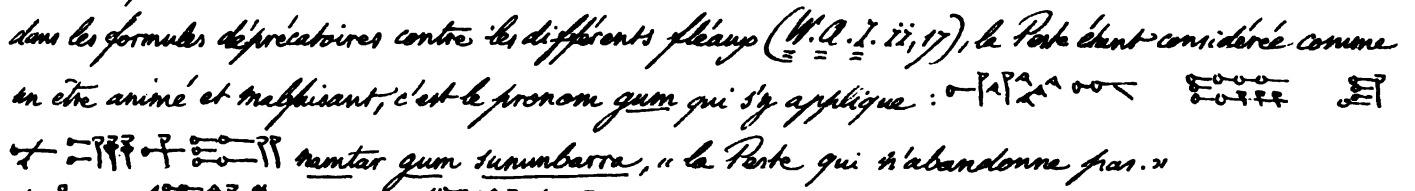 dans les formules déprécatoires contre les différents fléaux (W.A.I. ii, 17), la Peste étant considérée comme
un être animé et malfaisant, c'est le pronom gum qui s'y applique :
namtar gum sununbarra, « la Peste qui n'abandonne pas. »